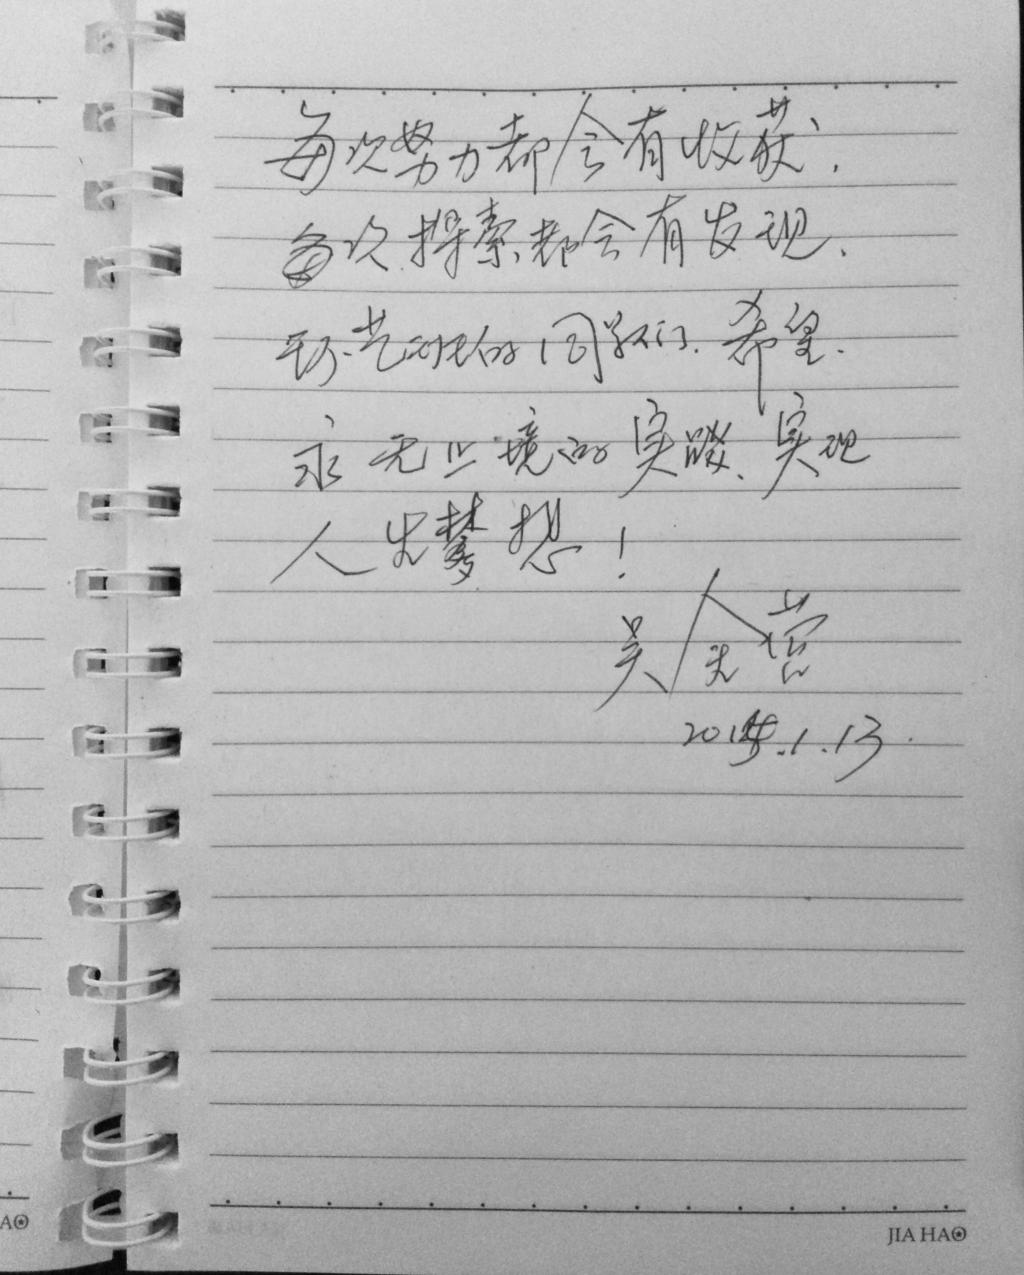 每次努力都会有收获,
每次探索都会有发现.
环艺班的同学们.希望.
永无止境的实践、实现
人生梦想!
吴
.1.13.
JIA HAO
AO